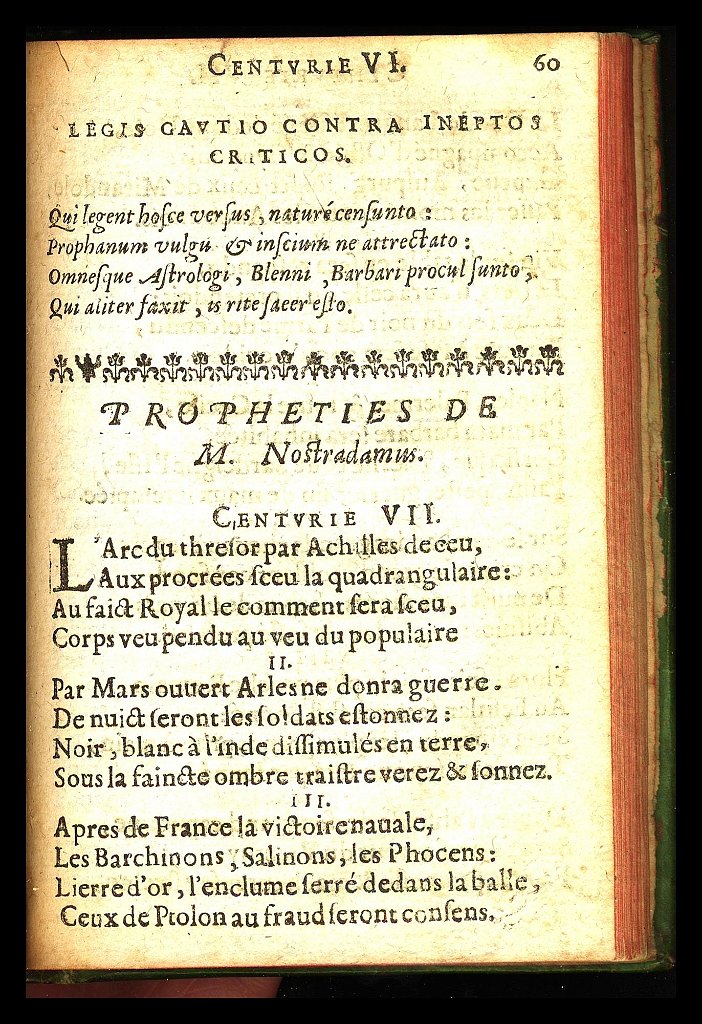 CENTVRIE VI. 60
LEGIS CAVTIO CONTRA INEPTOS
CRITICOS.
Qui legent hoſce verſus, naturé cenſunto:
Prophanum vulgu & inſcium ne attrectato:
Omneſque Aſtrologi, Blenni, Barbari procul ſunto,
Qui aliter faxit, is rite ſaeer eſto.
PROPHETIES DE
M. Noſtradamus.
CENTVRIE VII.
L'Arc du threſor par Achilles deceu,
Aux procrées ſceu la quadrangulaire:
Au faict Royal le comment ſera ſceu,
Corps veu pendu au veu du populaire
II.
Par Mars ouuert Arles ne donra guerre.
De nuict ſeront les ſoldats eſtonnez:
Noir, blanc à l'inde diſſimulés en terre,
Sous la faincte ombre traiſtre verez & ſonnez.
III.
Apres de France la victoire nauale,
Les Barchinons, Salinons, les Phocens:
Lierre d'or, l'enclume ſerré dedans la balle,
Ceux de Ptolon au fraud ſeront conſens.